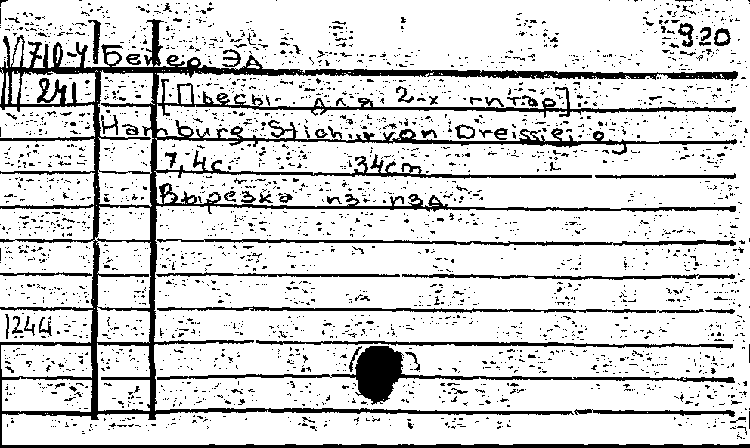 920
М 710-4 Бейер Эд.
241 [Пьесы для 2-х гитар].
Hamburg, Stich u. von Dreissig, o. J.
7, 4с. 34cm.
Вырезка из изд.
1244